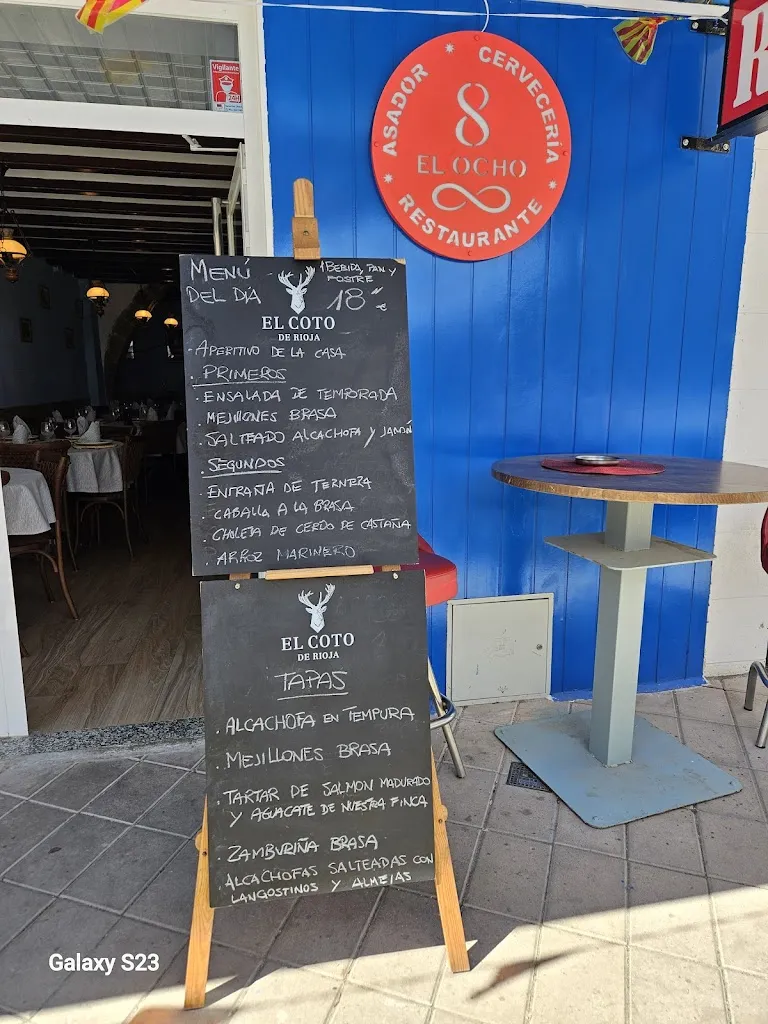 Vigilante
ASADOR
CERVECERÍA
8
EL OCHO
RESTAURANTE
R
MENÚ
DEL DÍA
1 BEBIDA, PAN Y
POSTRE
18 €
EL COTO
DE RIOJA
- APERITIVO DE LA CASA
. PRIMEROS
. ENSALADA DE TEMPORADA
. MEJILLONES BRASA
. SALTEADO ALCACHOFA Y JAMÓN
. SEGUNDOS
. ENTRAÑA DE TERNERA
. CABALLA A LA BRASA
. CHULETA DE CERDO DE CASTAÑA
. ARROZ MARINERO
EL COTO
DE RIOJA
TAPAS
. ALCACHOFA EN TEMPURA
. MEJILLONES BRASA
. TARTAR DE SALMON MADURADO
Y AGUACATE DE NUESTRA FINCA
. ZAMBURIÑA BRASA
. ALCACHOFAS SALTEADAS CON
LANGOSTINOS Y ALMEJAS
Galaxy S23